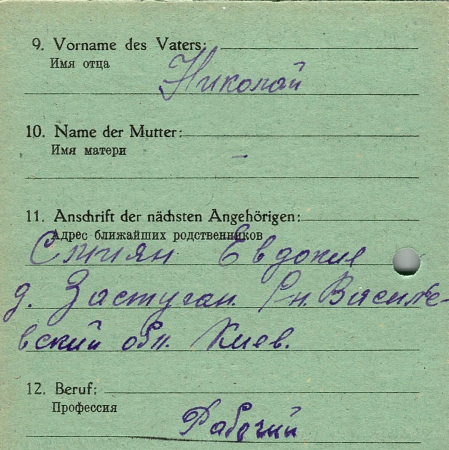 9. Vorname des Vaters:
Имя отца
Николай
10. Name der Mutter:
Имя матери
–
11. Anschrift der nächsten Angehörigen:
Адрес ближайших родственников
Евдокия
д. Застуган Рн. Василь-
евский обл. Киев.
12. Beruf:
Профессия
Рабочий